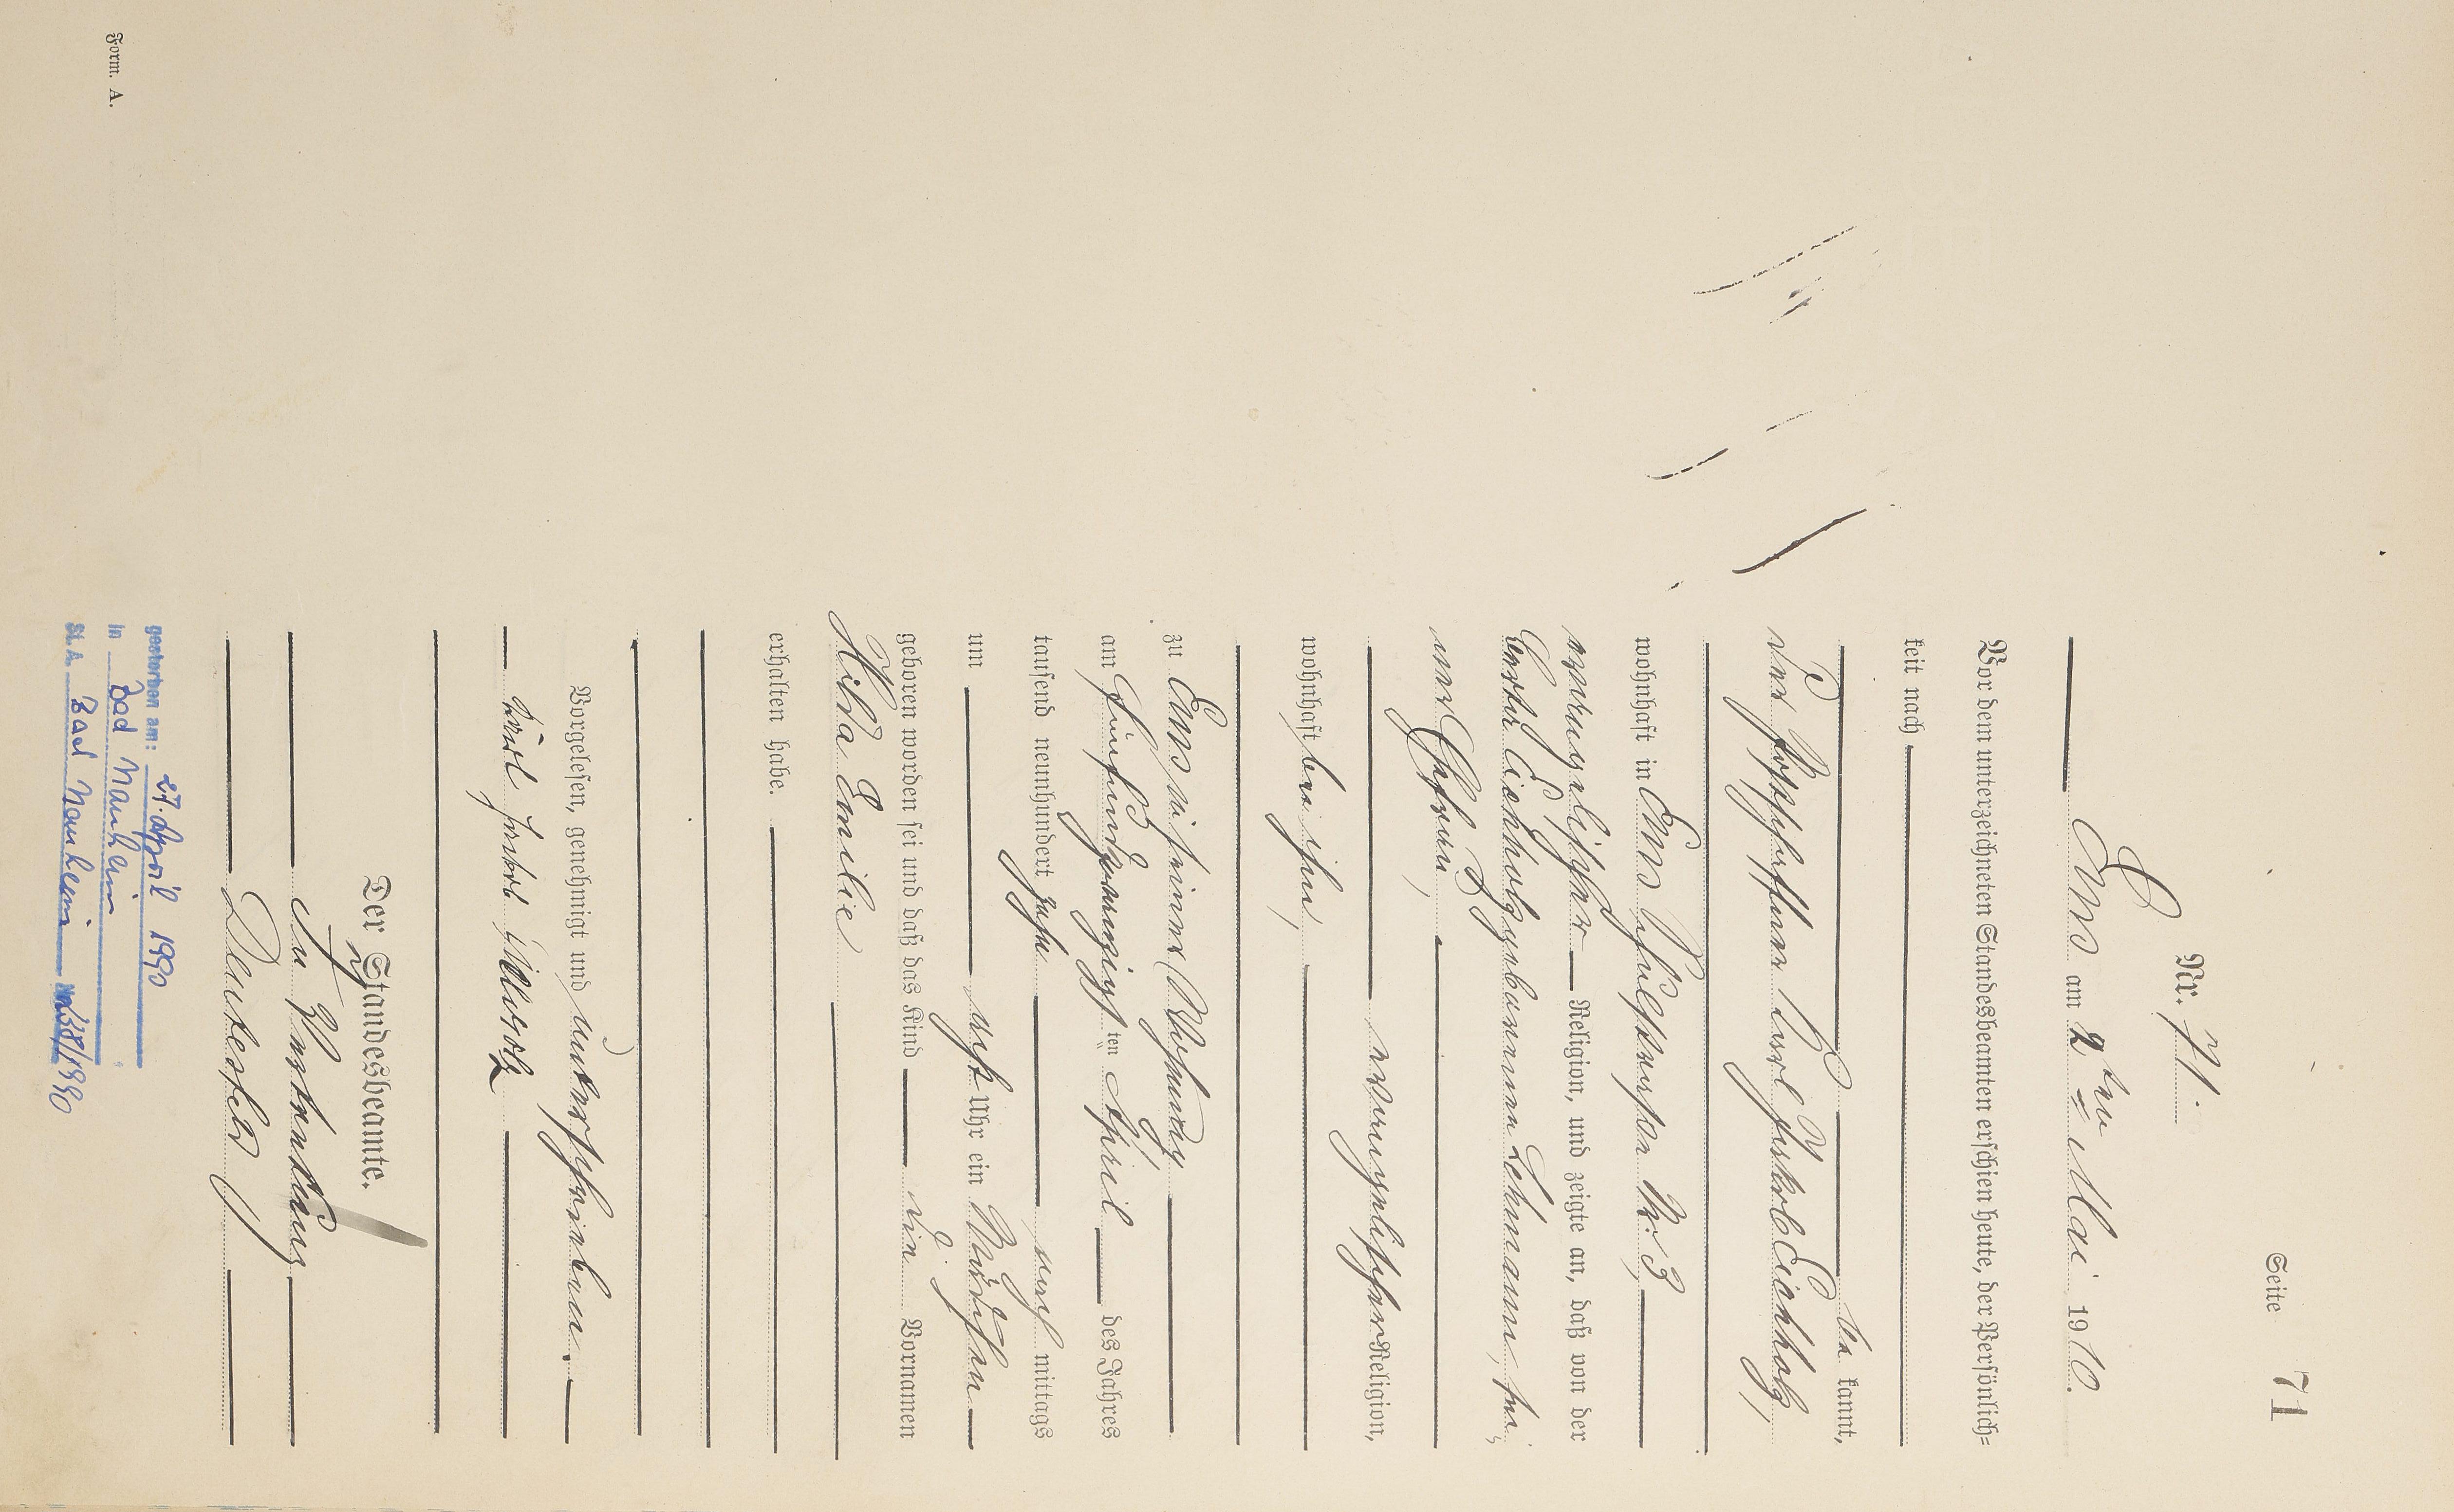 Seite 71
Nr. 71.
Ems am 2ten Mai 1910.
Vor dem unterzeichneten Standesbeamten erschien heute, der Persönlich-
keit nach
be kannt,
der Karl Jakob Eichholz,
wohnhaft in Ems, Schulstraße Nr. 3,
evangelischer Religion, und zeigte an, daß von der
Eichholz geborenen Lehmann, sei-
ner Ehefrau,
evangelischer Religion,
wohnhaft bei ihm,
zu Ems in seiner Wohnung
am fünfundzwanzigsten April des Jahres
tausend neunhundert zehn nach mittags
um acht Uhr ein Mädchen
geboren worden sei und daß das Kind die Vornamen
Hilda Emilie
erhalten habe.
Vorgelesen, genehmigt und unterschrieben.
Karl Jakob Eichholz
Der Standesbeamte.
In Vertretung
gestorben am: 27. April 1990
in Bad Nauheim
St. A. Bad Nauheim No. 138/1990
Form. A.